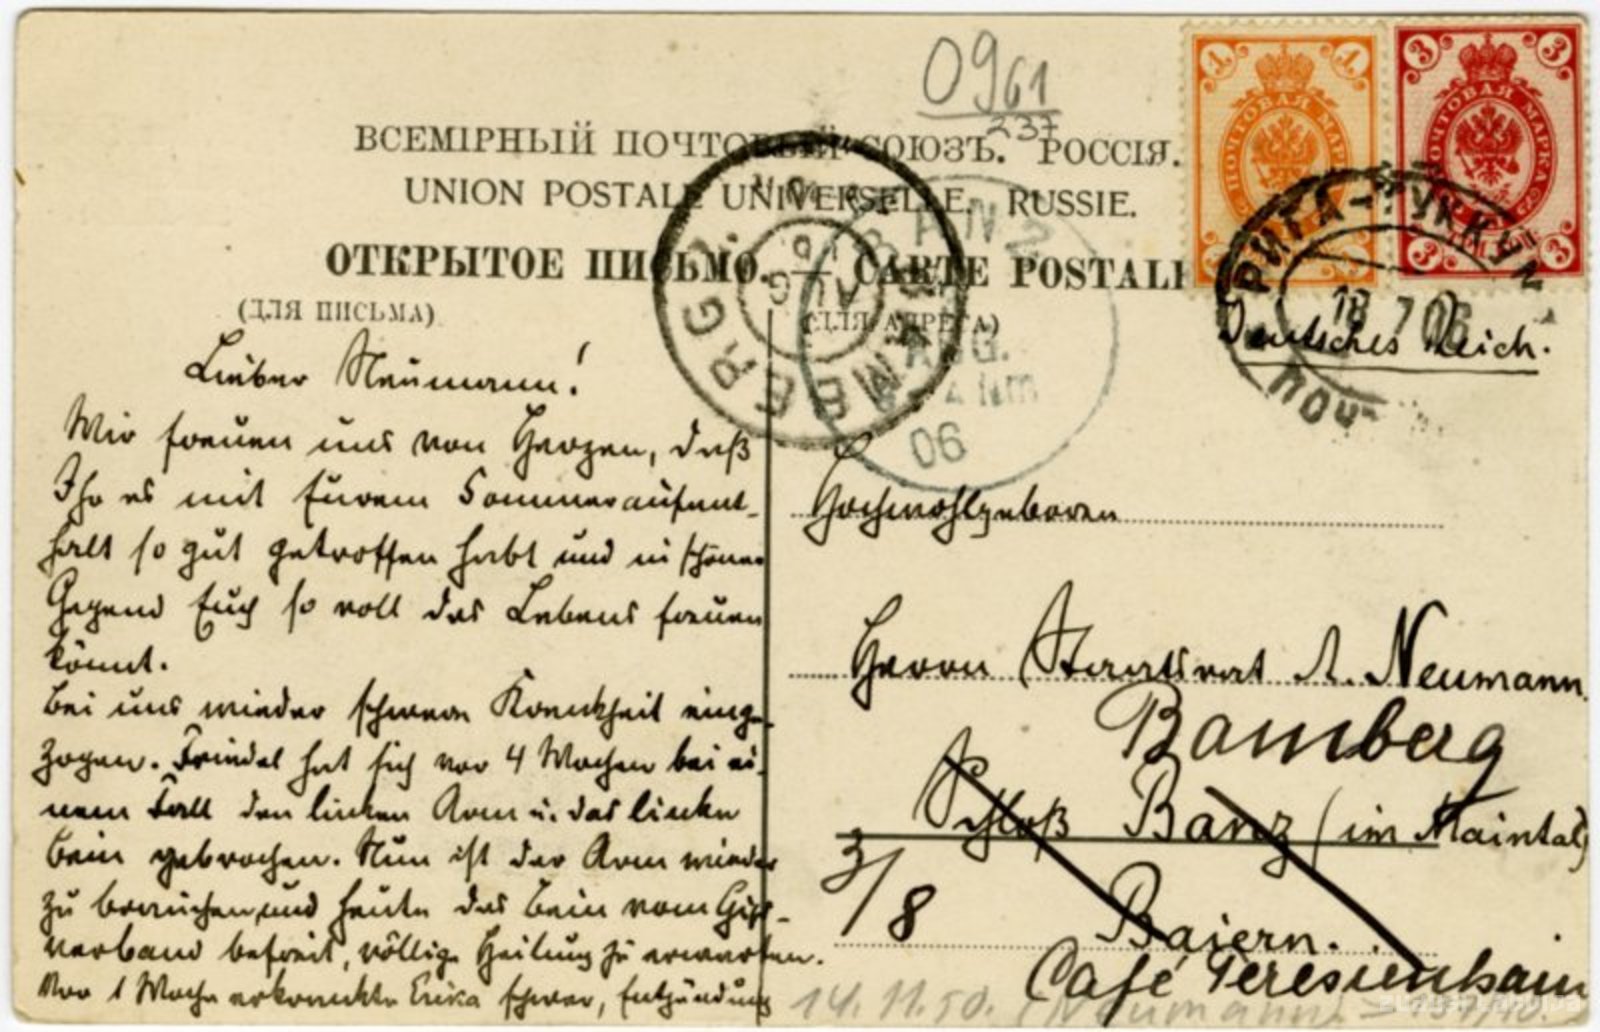 0961
237
ВСЕМІРНЫЙ ПОЧТОВЫЙ СОЮЗЪ. РОССІЯ.
UNION POSTALE UNIVERSELLE. RUSSIE.
ОТКРЫТОЕ ПИСЬМО. — CARTE POSTALE
(ДЛЯ ПИСЬМА)
(ДЛЯ АДРЕСА)
1 1
ПОЧТОВАЯ МАРКА
3 3
ПОЧТОВАЯ МАРКА
3 3
РИГА-ТУККУМ
18 7 06
ПОЧ
BAMBERG
AU
BANZ
AUG.
4 Nm
06
Lieber Neumann!
Wir freuen uns von Herzen, daß
Ihr es mit Eurem Sommeraufent-
halt so gut getroffen habt und in schöner
Gegend Euch so voll des Lebens freuen
könnt.
Bei uns wieder schwere Krankheit einge-
zogen. Friedel hat sich vor 4 Wochen bei ei-
nem Fall den linken Arm u. das linke
Bein gebrochen. Nun ist der Arm wieder
zu brauchen und heute das Bein vom Gips-
verband befreit, völlige Heilung zu erwarten.
Vor 1 Woche erkrankte Erika schwer, Entzündung
Deutsches Reich.
Hochwohlgeboren
Herrn Staatsrat A. Neumann
Bamberg
Schloß Banz (im Maintal)
3/8
Baiern.
Café Teresienhain
14.11.50. (Neumann)